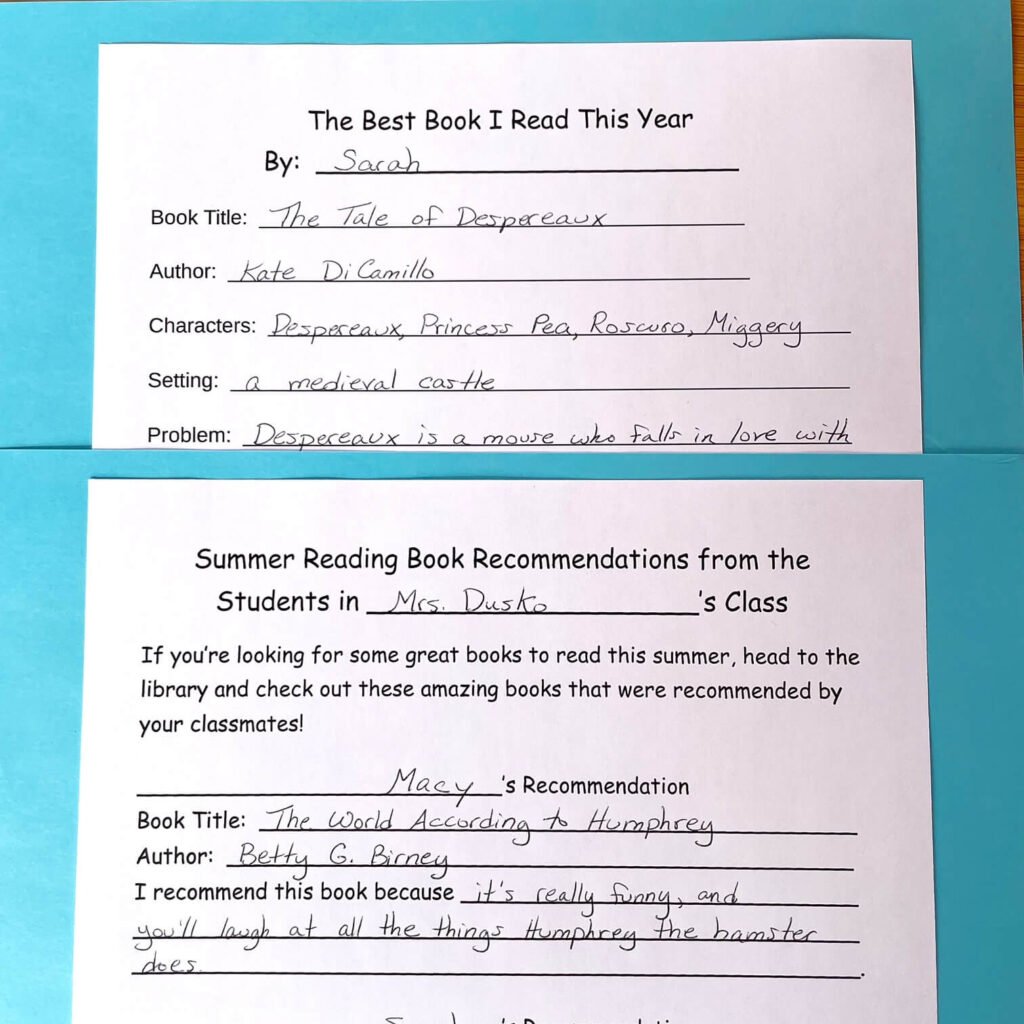 The Best Book I Read This Year
By: Sarah
Book Title: The Tale of Despereaux
Author: Kate DiCamillo
Characters: Despereaux, Princess Pea, Roscuro, Miggery
Setting: a medieval castle
Problem: Despereaux is a mouse who falls in love with
Summer Reading Book Recommendations from the
Students in Mrs. Dusko's Class
If you're looking for some great books to read this summer, head to the
library and check out these amazing books that were recommended by
your classmates!
Macy's Recommendation
Book Title: The World According to Humphrey
Author: Betty G. Birney
I recommend this book because it's really funny, and
you'll laugh at all the things Humphrey the hamster
does.